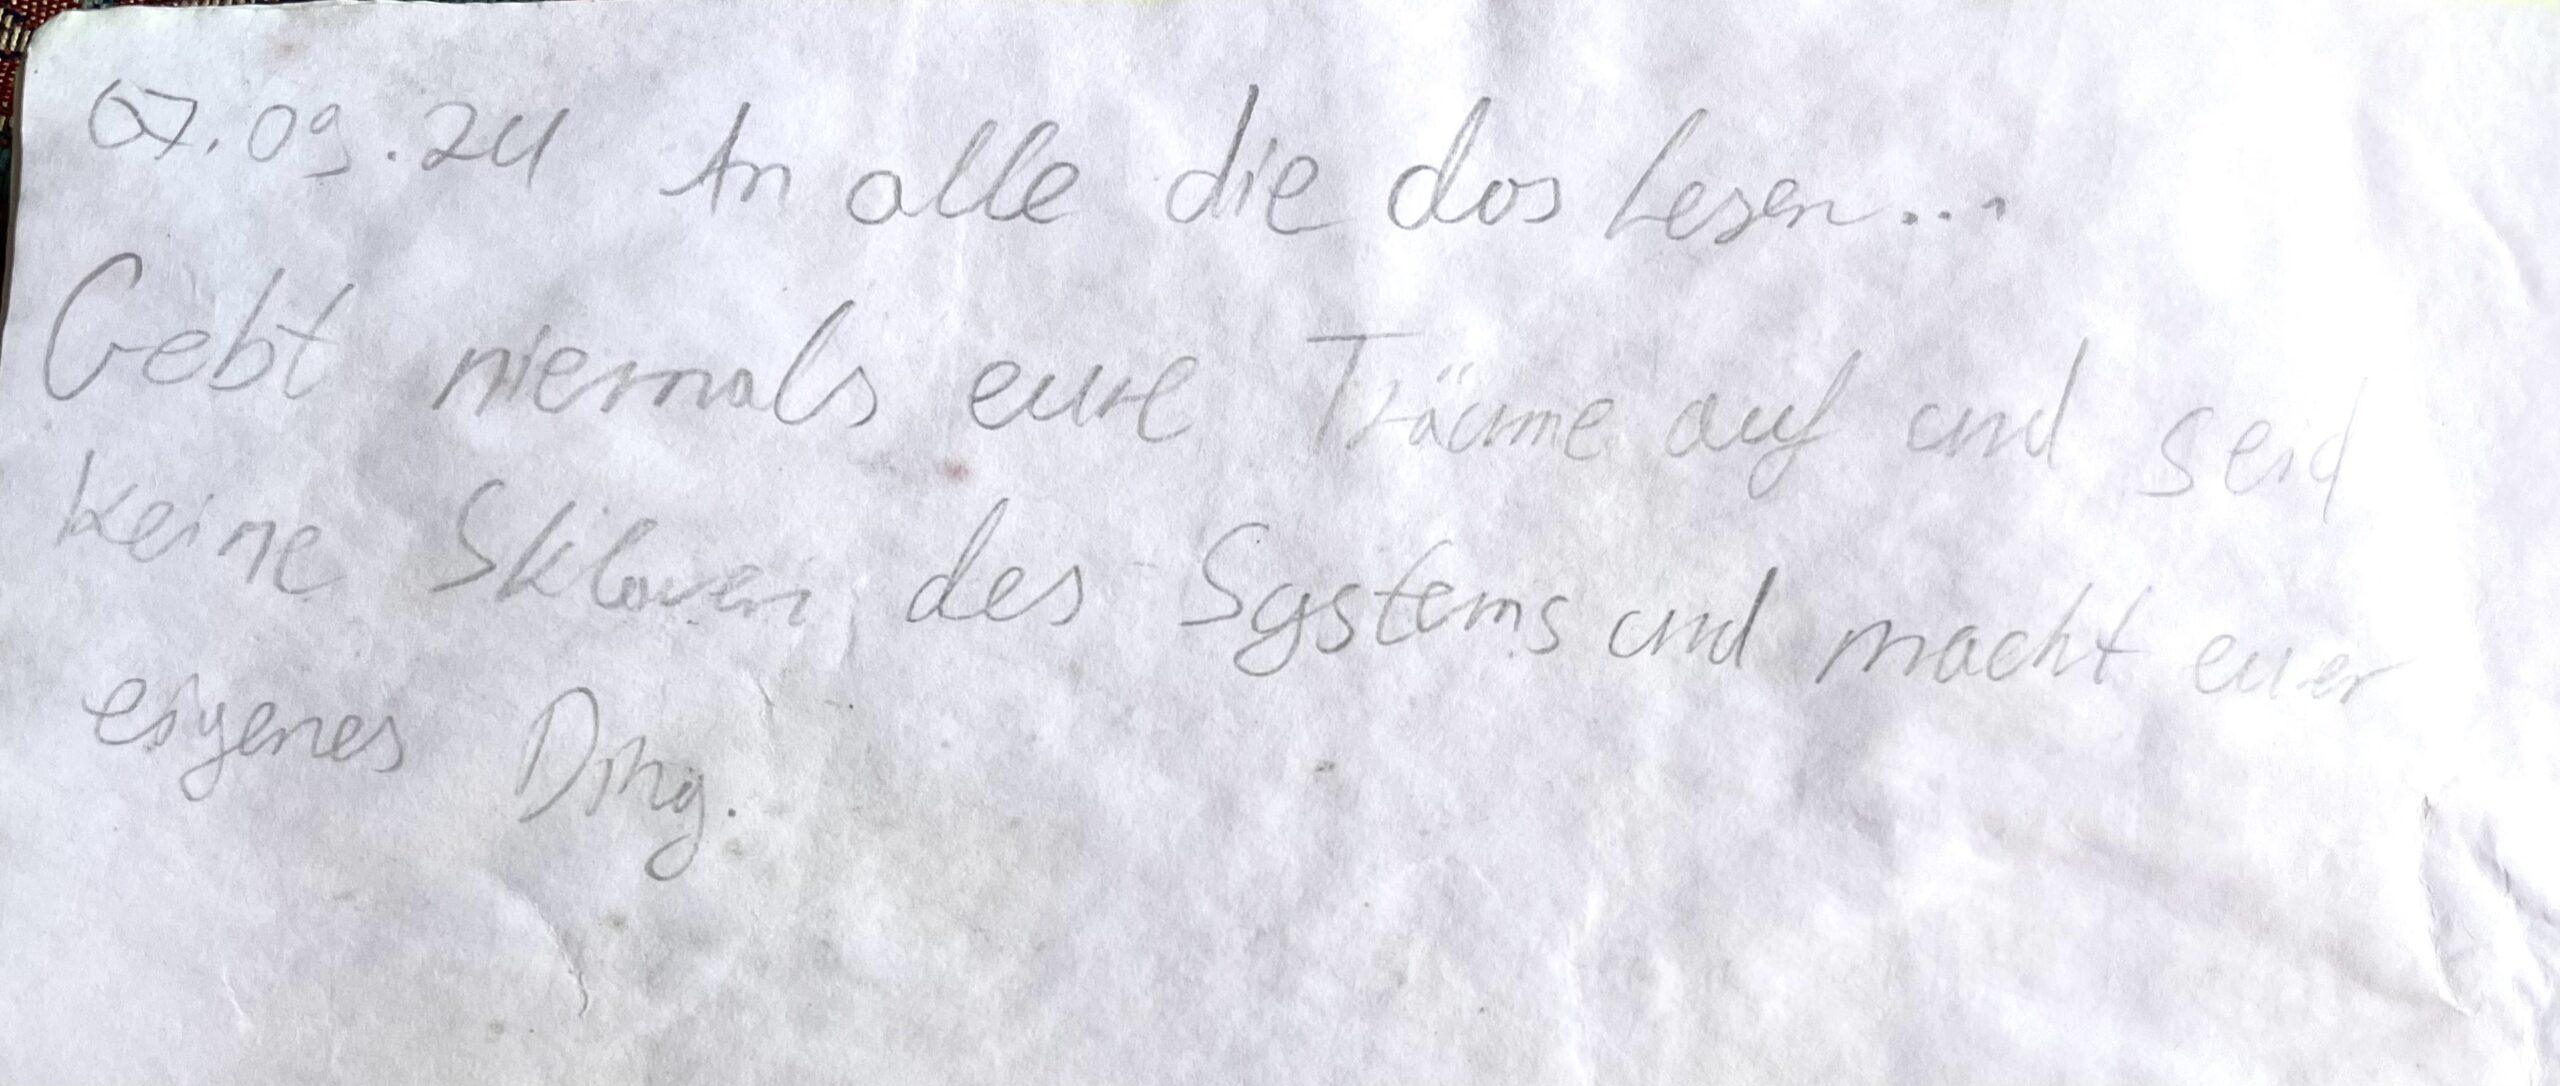 07.09.24 An alle die das Lesen...
Gebt niemals eure Träume auf und seid
keine Sklaven des Systems und macht euer
eigenes Ding.